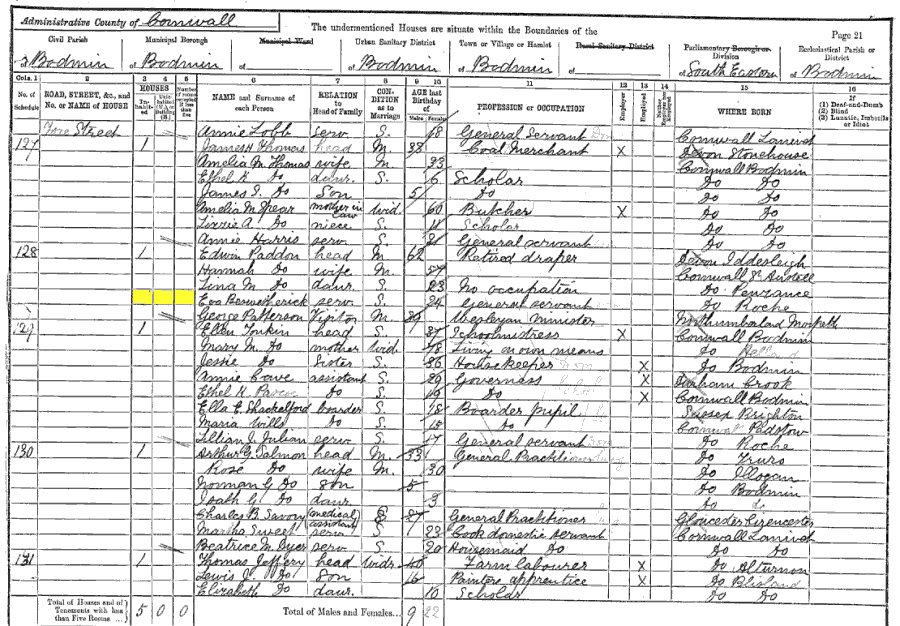 Administrative County of Cornwall
The undermentioned Houses are situate within the Boundaries of the
Page 21
Civil Parish
Municipal Borough
Municipal Ward
Urban Sanitary District
Town or Village or Hamlet
Rural Sanitary District
Parliamentary Borough or Division
Ecclesiastical Parish or District
of Bodmin of Bodmin of of Bodmin of Bodmin of of South Eastern of Bodmin
Cols. 1 2 3 4 5 6 7 8 9 10 11 12 13 14 15 16
No. of Schedule
ROAD, STREET, &c., and No. or NAME of HOUSE
HOUSES
Inhabited
Number of rooms occupied if less than five
NAME and Surname of each Person
RELATION to Head of Family
CONDITION as to Marriage
AGE last Birthday of
Males Females
PROFESSION or OCCUPATION
Employer
Employed
WHERE BORN
If (1) Deaf-and-Dumb (2) Blind (3) Lunatic, Imbecile or Idiot
Fore Street Annie Lobb serv. S. 18 General Servant Cornwall Lanivet
127 1 James H Thomas head M. 38 Coal Merchant X Devon Stonehouse
Amelia M. Thomas wife M. 33 Cornwall Bodmin
Ethel K Do daur. S. 6 Scholar Do Do
James S. Do Son 5 Do Do Do
Amelia M. Spear mother in law Wid. 60 Butcher X Do Do
Lizzie A. Do niece S. 11 Scholar Do Do
Annie Harris serv. S. 21 General servant Do Do
128 1 Edwin Paddon head M 62 Retired draper Devon Iddesleigh
Hannah Do wife M. 57 Cornwall St Austell
Lena M. Do daur. S. 23 No occupation Do Penzance
Eva Beswetherick serv. S. 24 General servant Do Roche
George Patterson Visitor M. 39 Wesleyan Minister Northumberland Morpeth
129 1 Ellen Tonkin head S. 37 Schoolmistress X Cornwall Bodmin
Mary M. Do mother Wid. 78 Living on own means Do
Jessie Do Sister S. 36 Housekeeper X Do Bodmin
Annie Cave assistant S. 29 Governess X Durham Crook
Ethel K Pascoe Do S. 19 Do X Cornwall Bodmin
Ella E. Shackelford boarder S. 18 Boarder pupil Sussex Brighton
Maria Wills Do S. 15 Do Cornwall Padstow
Lillian J. Julian serv. S. 17 General servant Do Roche
130 1 Arthur G. Salmon head M. 33 General Practitioner Do Truro
Rose Do wife M. 30 Do Illogan
Norman G. Do Son 5 Do Bodmin
G. Do daur. 3 Do do
Charles B. Savory (medical assistant) S 27 General Practitioner Gloucester Cirencester
Martha Sweet serv. S. 23 Cook domestic servant Cornwall Lanivet
Beatrice M. Dyer serv. S. 20 Housemaid Do Do Do
131 1 Thomas Jeffery head widr. 40 Farm labourer X Do Alturnon
Lewis J. Do Son 16 Painters apprentice X Do Blisland
Elizabeth Do daur. 10 Scholar Do Do
Total of Houses and of Tenements with less than Five Rooms 5 0 0
Total of Males and Females 9 22